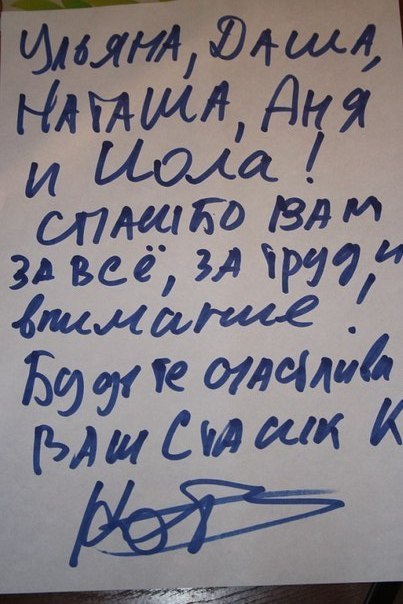 Ульяна, Даша,
Наташа, Аня
и Иола!
спасибо вам
за всё, за труд, и
внимание!
Будьте счастливы
Ваш Стасик К